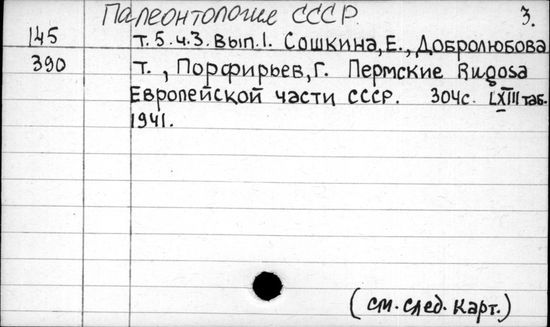 Палеонтология СССР. 3.
145 т.5.ч.3.вып.1. Сошкина,Е.,Добролюбова
390 Т., Порфирьев,Г. Пермские Rugosa
Европейской части СССР. 304с. LXIII таб.
1941.
(см.след.карт.)